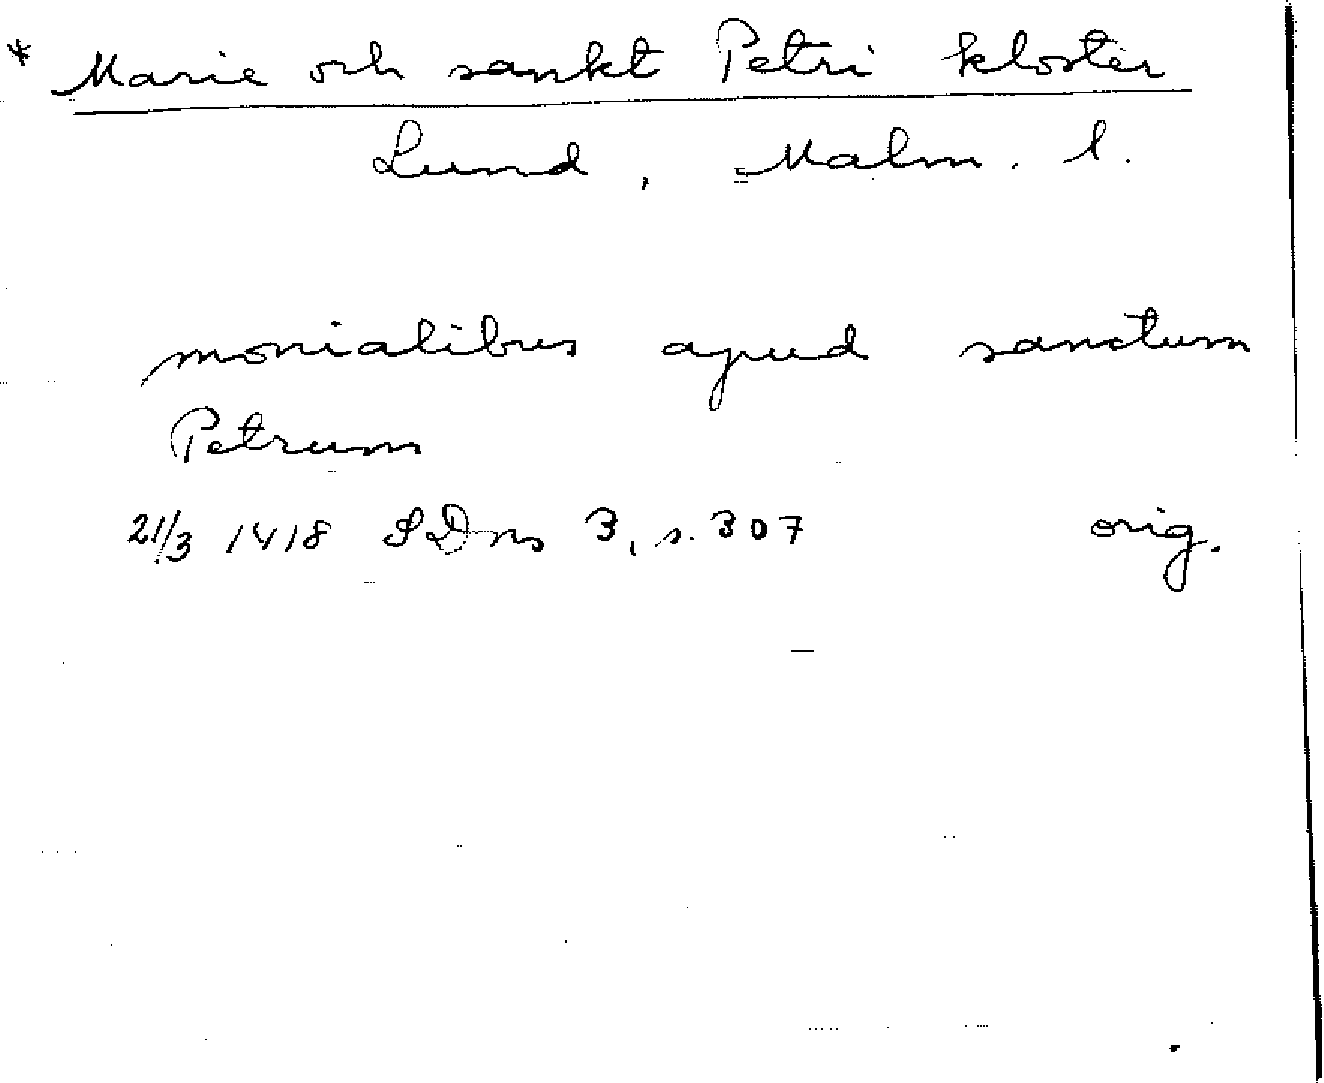 * Marie och sankt Petri kloster
Lund, Malm. l.
monialibus apud sanctum
Petrum
21/3 1418 SDns 3, s. 307 orig.